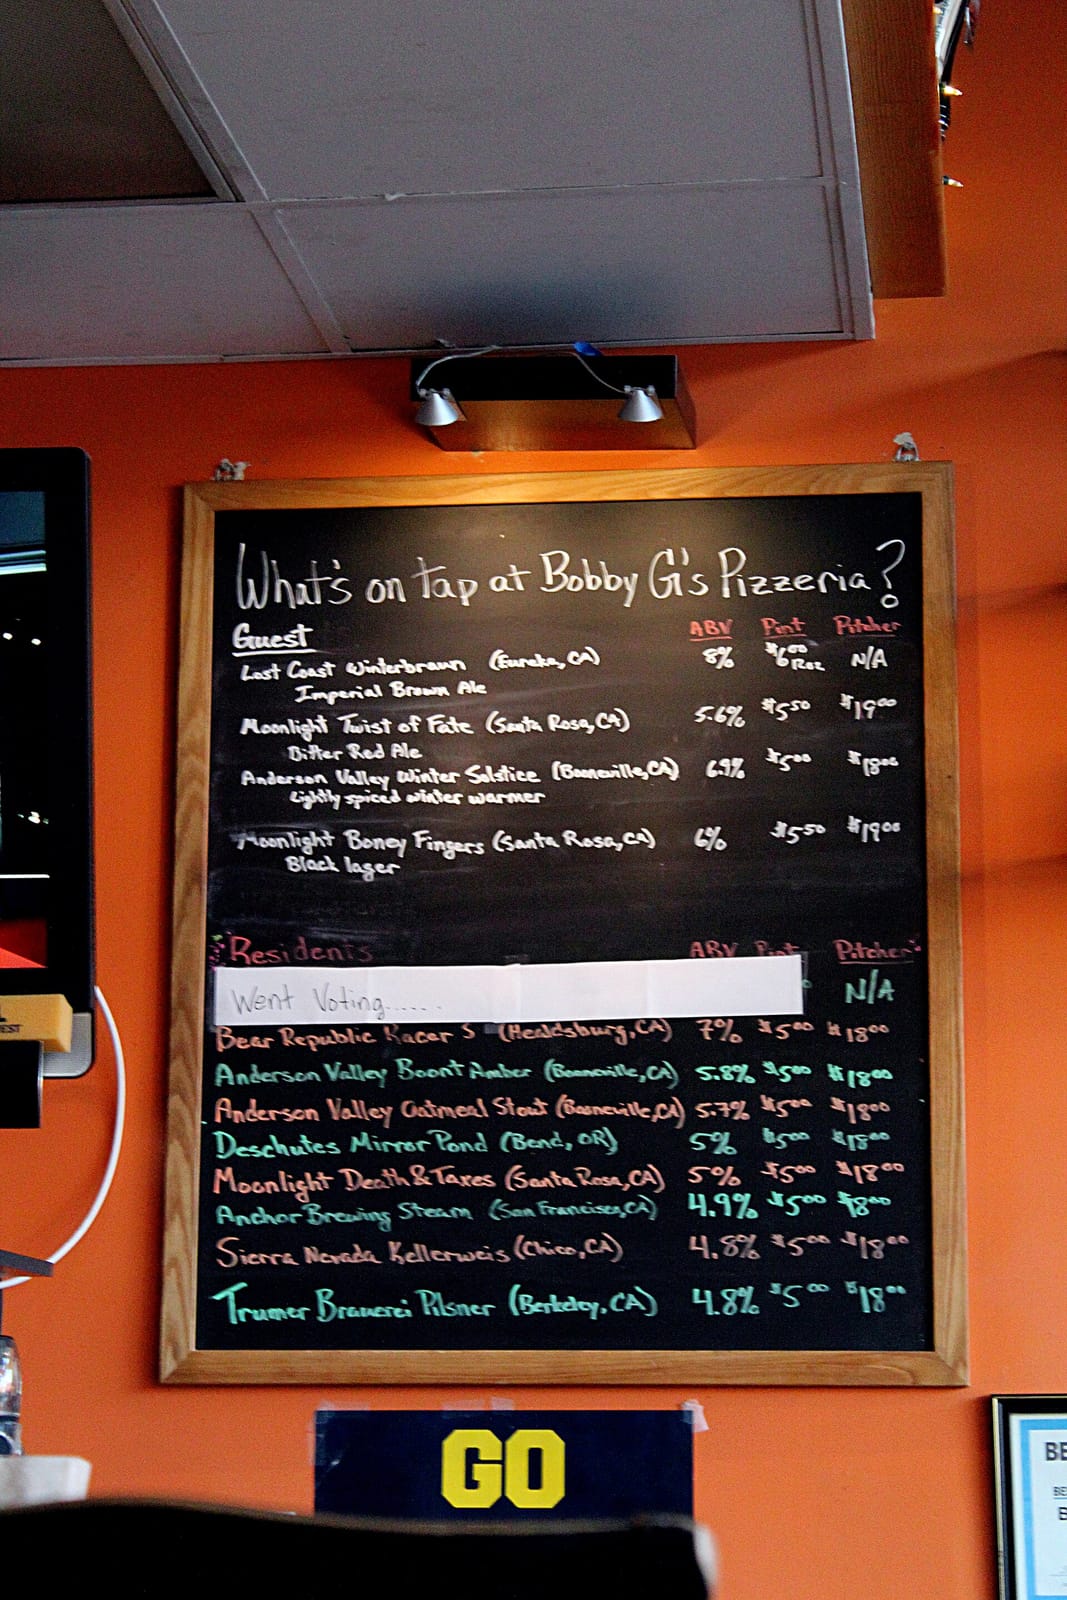 What's on tap at Bobby G's Pizzeria?
Guest ABV Pint Pitcher
Lost Coast Winterbraun (Eureka, CA) 8% $6.00 12oz N/A
Imperial Brown Ale
Moonlight Twist of Fate (Santa Rosa, CA) 5.6% $5.50 $19.00
Bitter Red Ale
Anderson Valley Winter Solstice (Booneville, CA) 6.9% $5.00 $18.00
Lightly spiced winter warmer
Moonlight Boney Fingers (Santa Rosa, CA) 6% $5.50 $19.00
Black lager
Residents ABV Pint Pitcher
Went Voting...... N/A
Bear Republic Racer 5 (Healdsburg, CA) 7% $5.00 $18.00
Anderson Valley Boont Amber (Booneville, CA) 5.8% $5.00 $18.00
Anderson Valley Oatmeal Stout (Booneville, CA) 5.7% $5.00 $18.00
Deschutes Mirror Pond (Bend, OR) 5% $5.00 $18.00
Moonlight Death & Taxes (Santa Rosa, CA) 5% $5.00 $18.00
Anchor Brewing Steam (San Francisco, CA) 4.9% $5.00 $18.00
Sierra Nevada Kellerweis (Chico, CA) 4.8% $5.00 $18.00
Trumer Brauerei Pilsner (Berkeley, CA) 4.8% $5.00 $18.00
GO